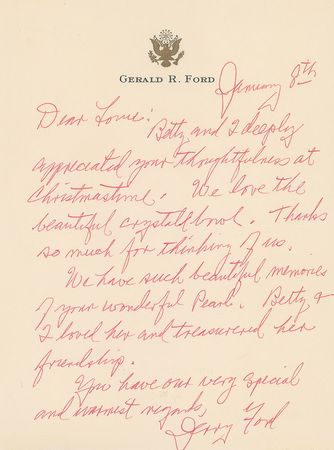 GERALD R. FORD
January 8th
Dear Lorie:
Betty and I deeply
appreciated your thoughtfulness at
Christmastime. We love the
beautiful crystal bowl. Thanks
so much for thinking of us.
We have such beautiful memories
of your wonderful Pearl. Betty &
I loved her and treasured her
friendship.
You have our very special
and warmest regards,
Jerry Ford